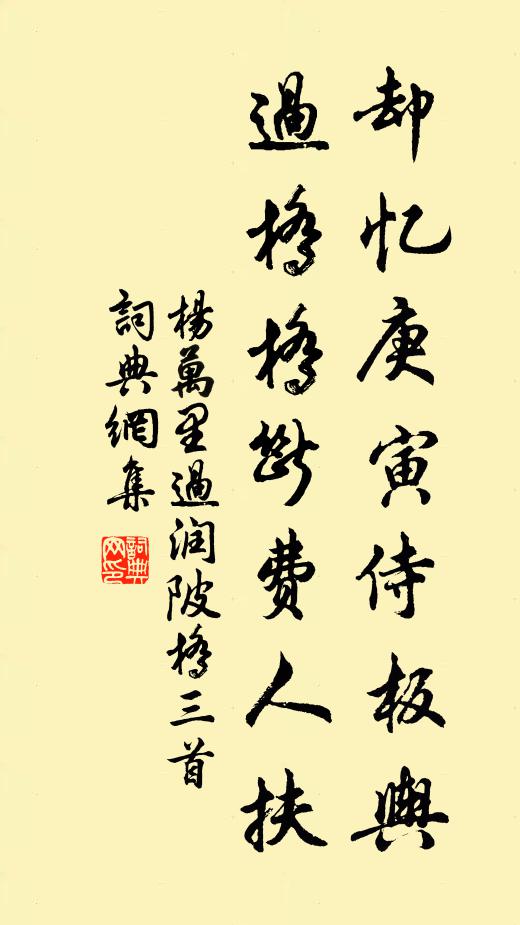 却忆庚寅侍板輿
過橋橋斷費人扶
楊萬里過润陂橋三首
詞典網集
詞典网印